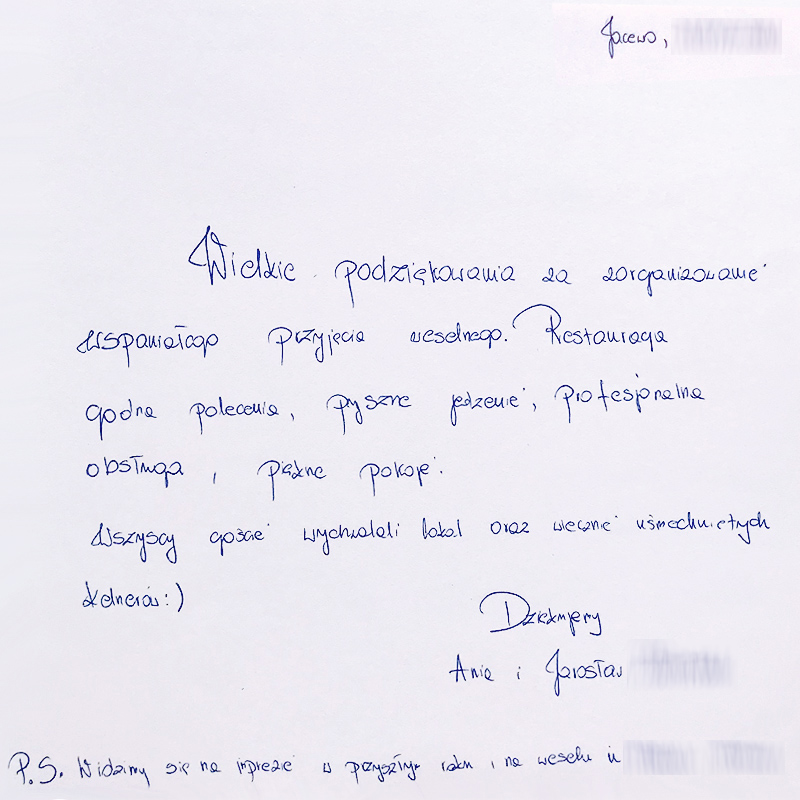 Jacewo,
Wielkie podziękowania za zorganizowanie
wspaniałego przyjęcia weselnego. Restauracja
godna polecenia, pyszne jedzenie, profesjonalna
obsługa, piękne pokoje.
Wszyscy goście wychwalali lokal oraz wiecznie uśmiechniętych
kelnerów:)
Dziękujemy
Ania i Jarosław
P.S. Widzimy się na imprezie w przyszłym roku i na weselu u